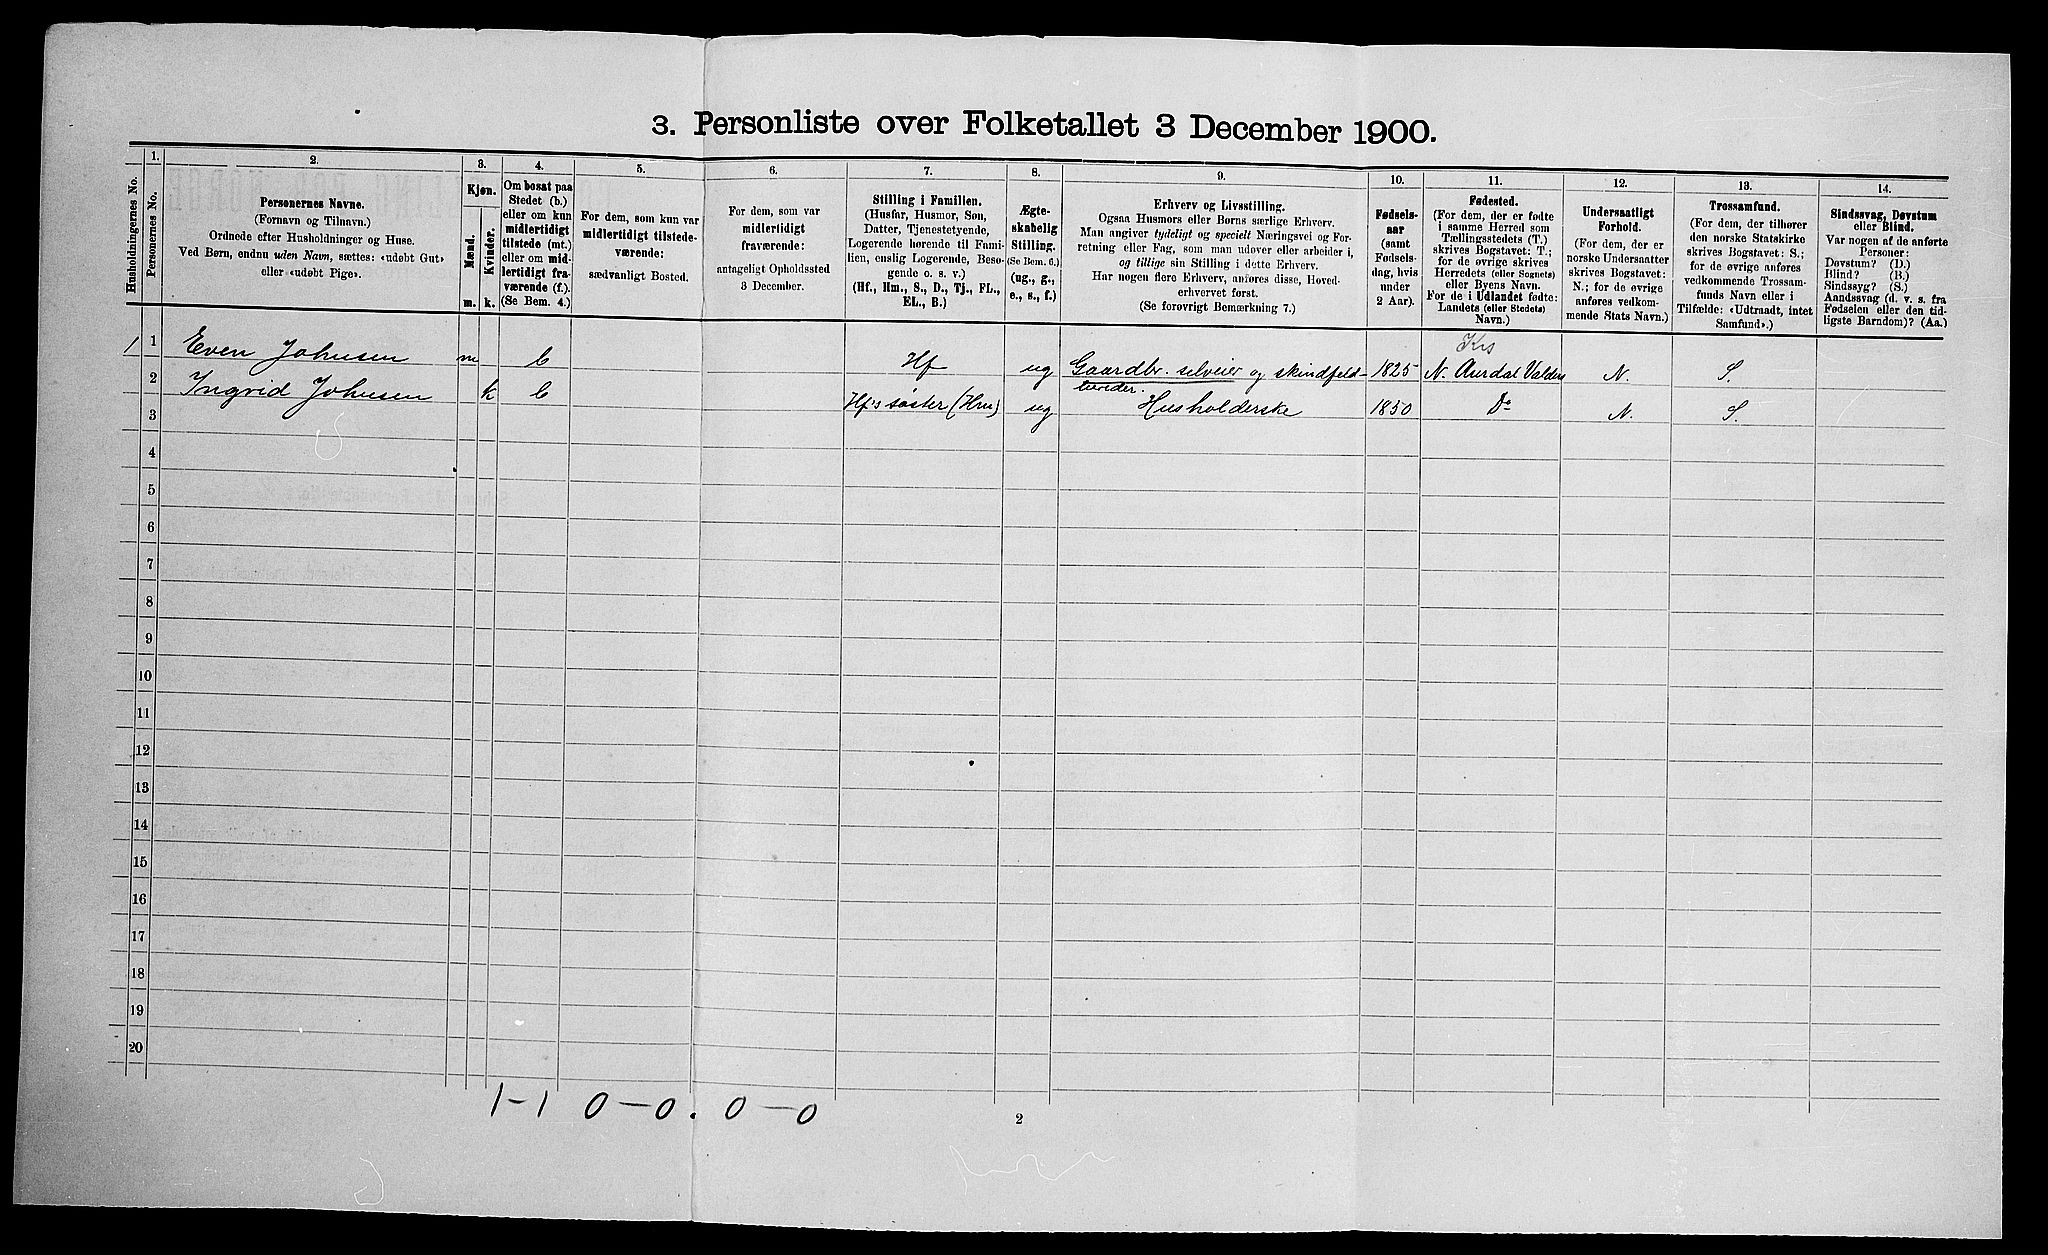 3. Personliste over Folketallet 3 December 1900.
Husholdningernes No.
1.
Personernes No.
2.
Personernes Navne.
(Fornavn og Tilnavn.)
Ordnede efter Husholdninger og Huse.
Ved Børn, endnu uden Navn, sættes: «udøbt Gut»
eller «udøbt Pige».
3.
Kjøn.
Mænd.
Kvinder.
m.
k.
4.
Om bosat paa
Stedet (b.)
eller om kun
midlertidigt
tilstede (mt.)
eller om mid-
lertidigt fra-
værende (f.).
(Se Bem. 4.)
5.
For dem, som kun var
midlertidigt tilstede-
værende:
sædvanligt Bosted.
6.
For dem, som var
midlertidigt
fraværende:
antageligt Opholdssted
3 December.
7.
Stilling i Familien.
(Husfar, Husmor, Søn,
Datter, Tjenestetyende,
Logerende hørende til Fami-
lien, enslig Logerende, Besø-
gende o. s. v.)
(Hf., Hm., S., D., Tj., FL.,
EL., B.)
8.
Ægte-
skabelig
Stilling.
(Se Bem. 6.)
(ug., g.,
e., s., f.)
9.
Erhverv og Livsstilling.
Ogsaa Husmors eller Børns særlige Erhverv.
Man angiver tydeligt og specielt Næringsvei og For-
retning eller Fag, som man udover eller arbeider i,
og tillige sin Stilling i dette Erhverv.
Har nogen flere Erhverv, anføres disse, Hoved-
erhvervet først.
(Se forøvrigt Bemærkning 7.)
10.
Fødsels-
aar
(samt
Fødsels-
dag, hvis
under
2 Aar).
11.
Fødested.
(For dem, der er fødte
i samme Herred som
Tællingsstedets (T.)
skrives Bogstavet: T.;
for de øvrige skrives
Herredets (eller Sognets)
eller Byens Navn.
For de i Udlandet fødte:
Landets (eller Stedets)
Navn.)
12.
Undersaatligt
Forhold.
(For dem, der er
norske Undersaatter
skrives Bogstavet:
N.; for de øvrige
anføres vedkom-
mende Stats Navn.)
13.
Trossamfund.
(For dem, der tilhører
den norske Statskirke
skrives Bogstavet: S.;
for de øvrige anføres
vedkommende Trossam-
funds Navn eller i
Tilfælde: «Udtraadt, intet
Samfund».)
14.
Sindssvag, Døvstum
eller Blind.
Var nogen af de anførte
Personer:
Døvstum? (D.)
Blind? (B.)
Sindssyg? (S.)
Aandssvag (d. v. s. fra
Fødselen eller den tid-
ligste Barndom)? (Aa.)
Krs
1 1 Even Johnsen m b Hf ug Gaardbr. selveier og skindfeld- 1825 N. Aurdal Valders N. S.
bereder.
2 Ingrid Johnsen k b Hf's søster (Hm) ug Husholderske 1850 Do N. S.
3
4
5
6
7
8
9
10
11
12
13
14
15
16
17
18
19
20
1-1 0-0. 0-0
2